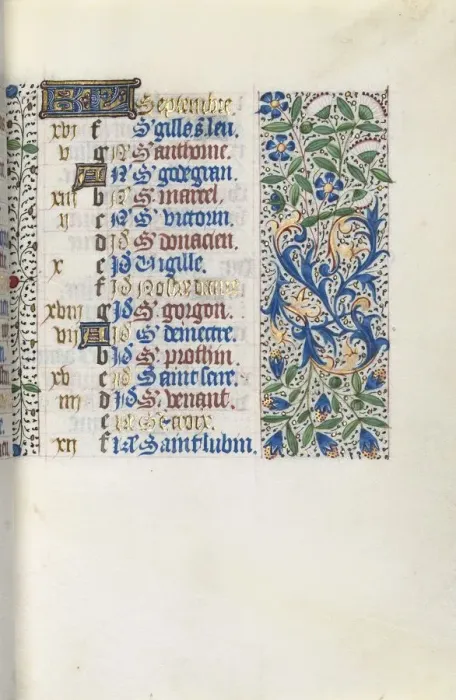 KL Septembre.
xvi f S' gilles s. leu.
v g N S' anthoine.
A N S' gorgian.
xiii b N S' marcel.
ii c N S' victorin.
d id S' donacien.
x e id Vigille.
f id Nostre dame
xviii g id S' gorgon.
vii A id S' demettre.
b id S' prothin
xv c id Saint serre.
iiii d id S' venant.
e id Ste croix.
xii f kl Saint lubin.